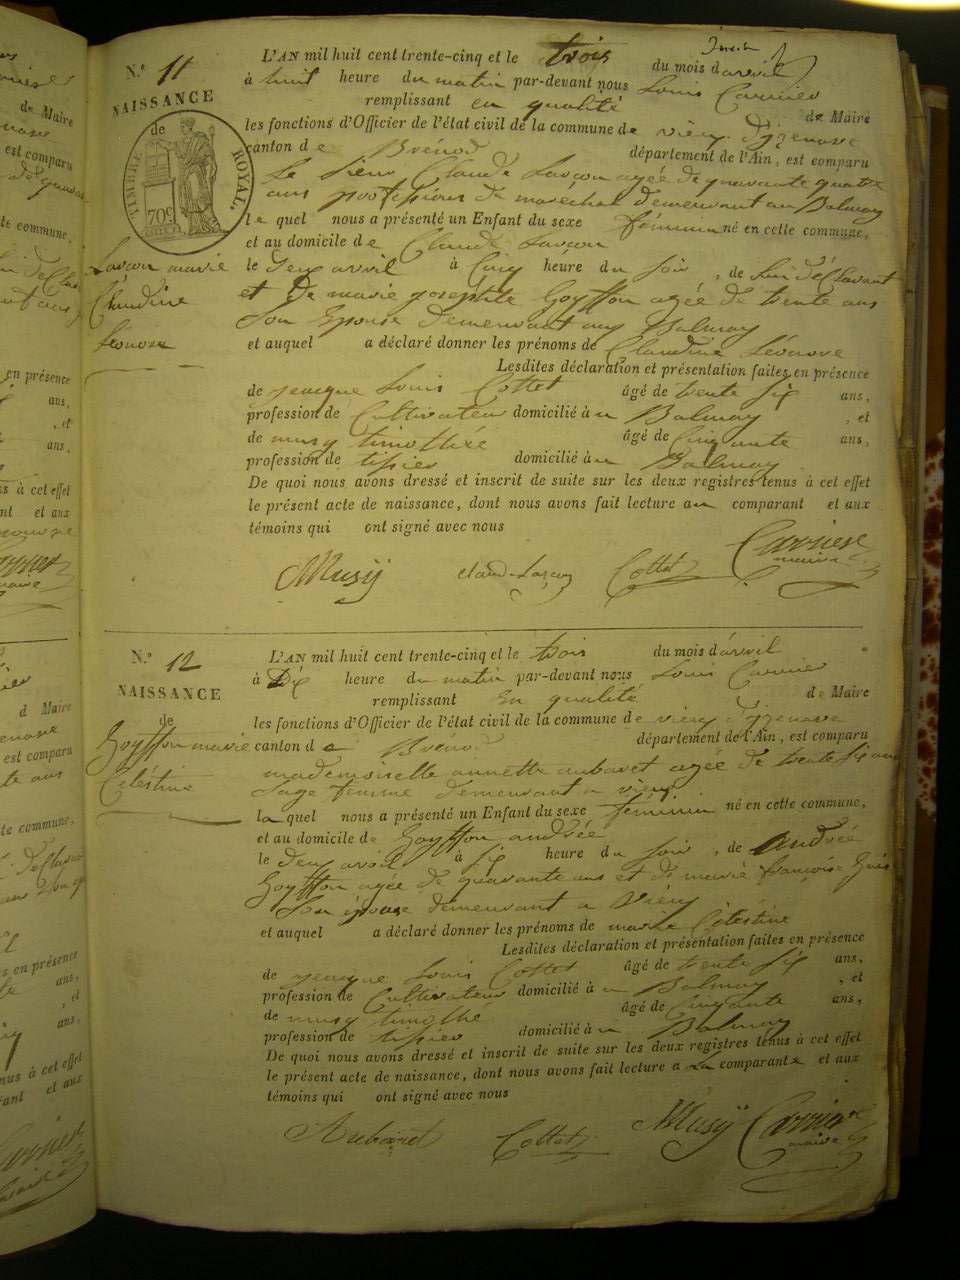 N.º 11
NAISSANCE
de
TIMBRE ROYAL.
70c
Lavaux marie
Claudine
L'AN mil huit cent trente-cinq et le trois du mois d avril
à huit heure du matin par-devant nous Louis Carrier
remplissant en qualité de Maire
les fonctions d'Officier de l'état civil de la commune de vieux d'izenave
canton de Brénod département de l'Ain, est comparu
Le sieur Claude agée de quarante quatre
ans profession de maréchal demeurant au Balmay
le quel nous a présenté un Enfant du sexe féminin né en cette commune,
et au domicile de Claude
le deux avril à cinq heure du soir, de
et De marie josephte Goyffon agée de trente ans
Son Epouse demeurant au Balmay
et auquel a déclaré donner les prénoms de Claudine
Lesdites déclaration et présentation faites en présence
de jacque Louis Cottet âgé de trente six ans,
profession de Cultivateur domicilié à u Balmay, et
de musy timothée âgé de cinquante ans,
profession de tissier domicilié à u Balmay
De quoi nous avons dressé et inscrit de suite sur les deux registres tenus à cet effet
le présent acte de naissance, dont nous avons fait lecture au comparant et aux
témoins qui ont signé avec nous
Musÿ Cottet Carrier
maire
N.º 12
NAISSANCE
de
Goyffon marie
Céléstine
L'AN mil huit cent trente-cinq et le trois du mois d'avril
à Dix heure du matin par-devant nous Louis Carrier
remplissant En qualité de Maire
les fonctions d'Officier de l'état civil de la commune de vieux d'izenave
canton de Brénod département de l'Ain, est comparu
mademoiselle annette aubaret agée de trente six ans
Sage femme demeurant a vieux
la quel nous a présenté un Enfant du sexe féminin né en cette commune,
et au domicile de Goyffon andrée
le deux avril à six heure du soir, de andrée
Goyffon agée de quarante ans et de marie françoise
Son épouse demeurant a Vieux
et auquel a déclaré donner les prénoms de marie Céléstine
Lesdites déclaration et présentation faites en présence
de jacque Louis Cottet âgé de trente six ans,
profession de Cultivateur domicilié à u Balmay, et
de musy timothé âgé de cinquante ans,
profession de tissier domicilié à u Balmay
De quoi nous avons dressé et inscrit de suite sur les deux registres tenus à cet effet
le présent acte de naissance, dont nous avons fait lecture a La comparante et aux
témoins qui ont signé avec nous
Aubaret Cottet Musÿ Carrier
maire